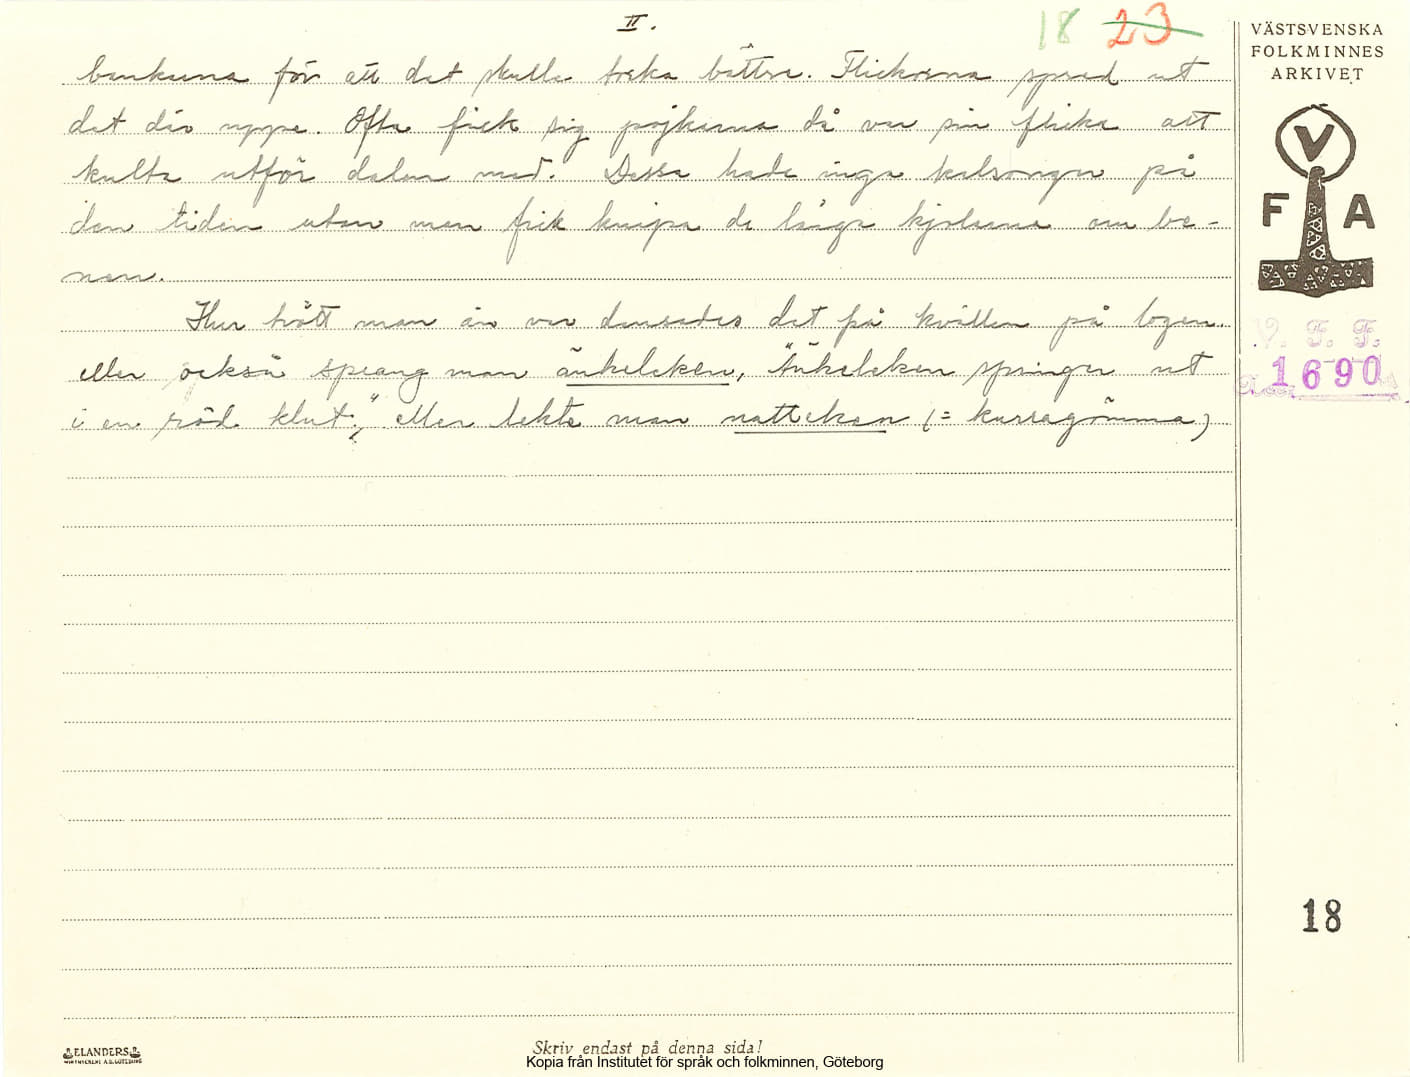 II.
18 23
bankarna för att det skulle torka bättre. Flickorna spred ut
det där uppe. Ofta fick sig pojkarna då var sin flicka att
kulta utför dalen med. Dessa hade inga kalsonger på
den tiden utan man fick knipa de långa kjolarna om be-
nen.
Hur trött man än var dansades det på kvällen på logen
eller också sprang man änkeleken, "Änkeleken springer ut
i en röd klut", eller lekte man natteken (= kurragömma)
VÄSTSVENSKA
FOLKMINNES
ARKIVET
V
F A
V. F. F.
1690
18
ELANDERS
Skriv endast på denna sida!
Kopia från Institutet för språk och folkminnen, Göteborg